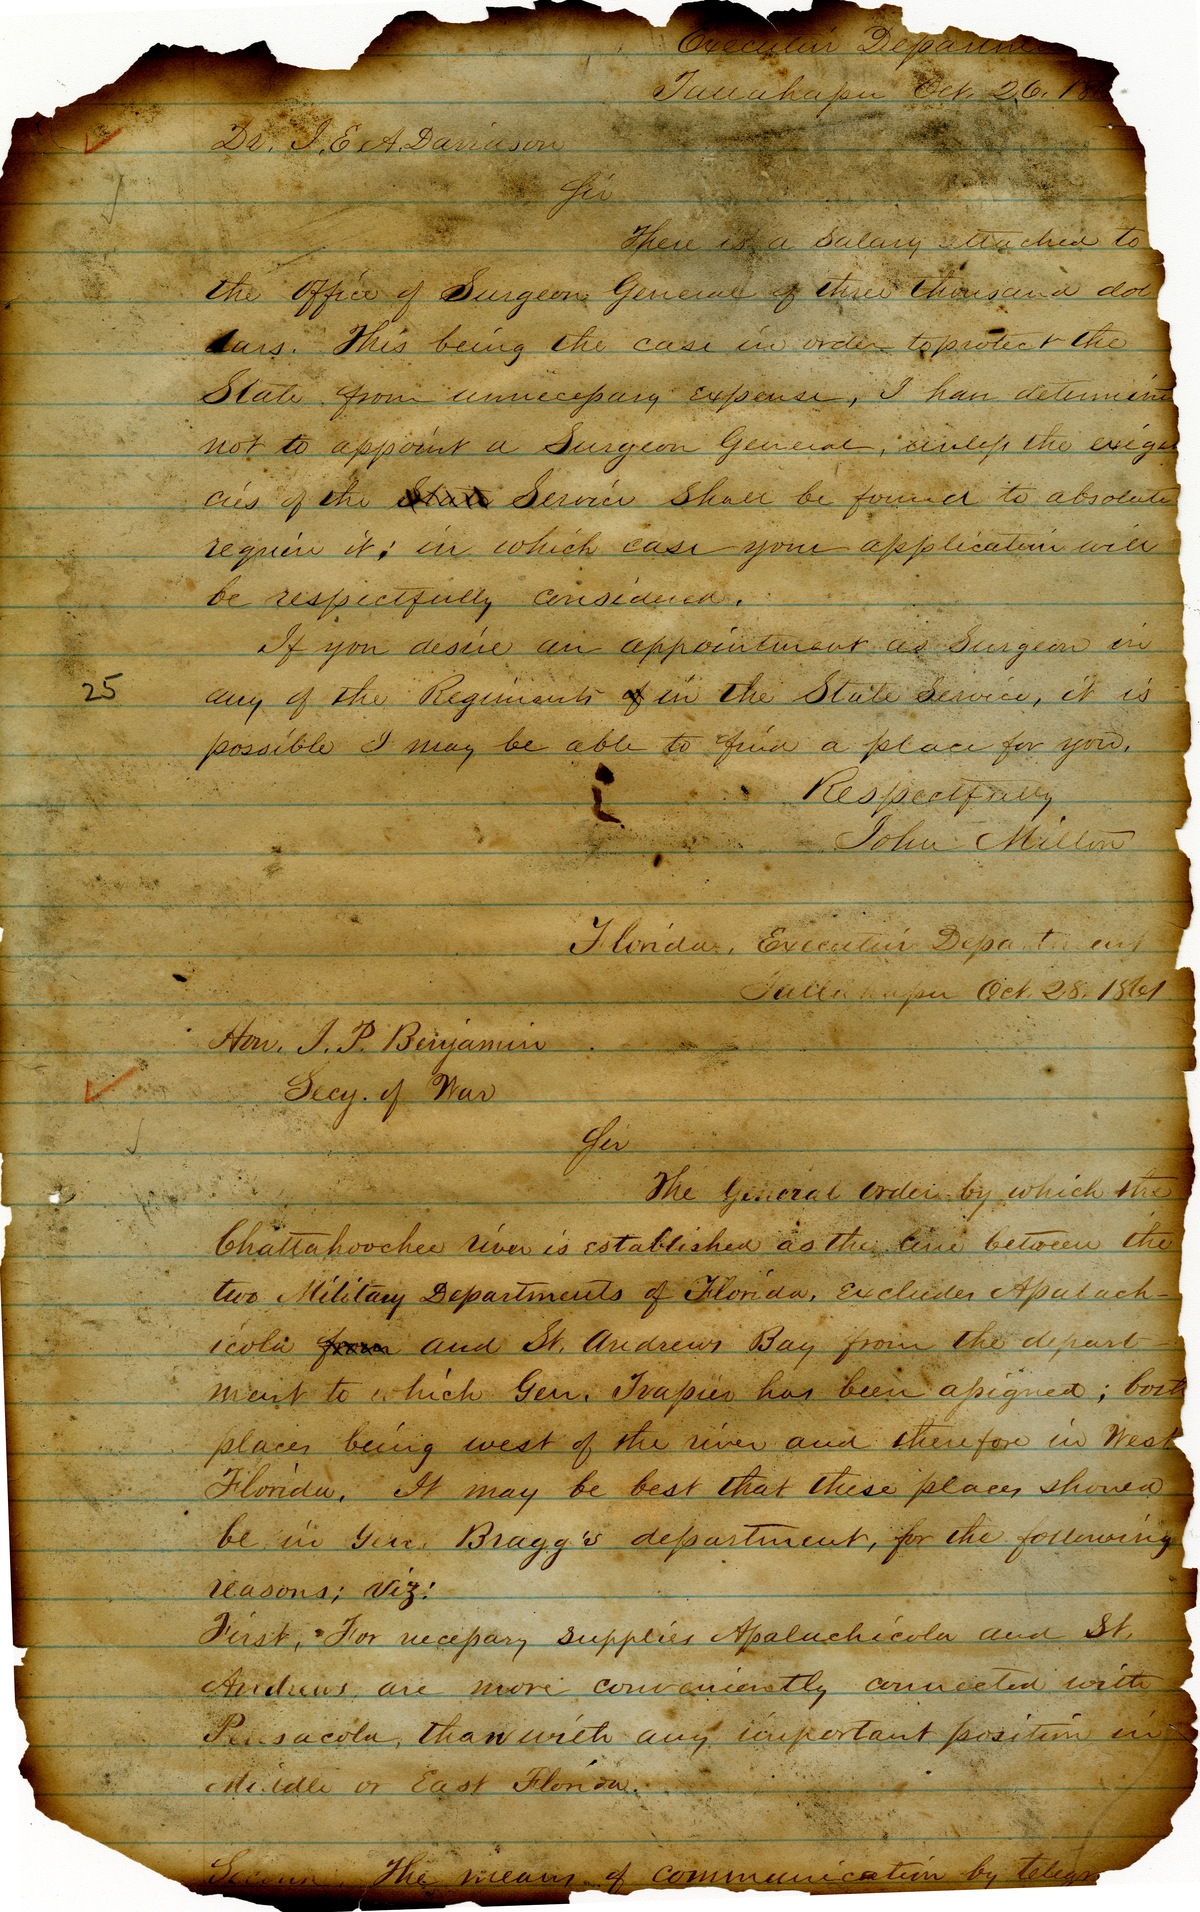 Executive Departme
Tallahassee Oct. 26. 186
Dr. J. E. A. Davidson
Sir
There is a Salary attached to
the Office of Surgeon General of three thousand dol
lars. This being the case in order to protect the
State from unnecessary expense, I have determined
not to appoint a Surgeon General, unless the exigen
cies of the State Service shall be found to absolute
require it; in which case your application will
be respectfully considered.
If you desire an appointment as Surgeon in
25 any of the Regiments of in the State Service, it is
possible I may be able to find a place for you.
Respectfully
John Milton
Florida, Executive Department
Tallahassee Oct. 28. 1861
Hon. J. P. Benjamin
Secy. of War
Sir
The General order by which the
Chattahoochee river is established as the line between the
two Military Departments of Florida, excludes Apalach-
icola from and St. Andrews Bay from the depart-
ment to which Gen. Trapier has been assigned; both
places being west of the river and therefore in West
Florida. It may be best that these places should
be in Gen. Bragg's department, for the following
reasons; viz:
First, For necessary supplies Apalachicola and St.
Andrews are more conveniently connected with
Pensacola, than with any important position in
Middle or East Florida.
Second. The means of communication by telegr